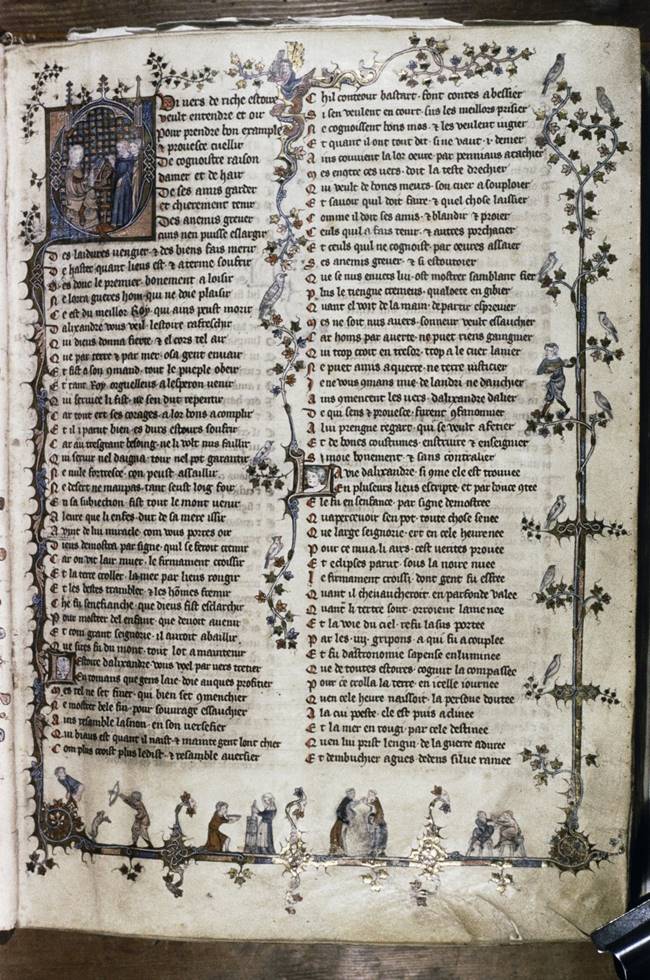 Qui vers de riche estoire
veult entendre et oir
Pour prendre bon example
& prouesce cuellir
De cognoistre raison
damer et de hair
De ses amis garder
et chierement tenir
Des anemis grever
quns nen puisse eslargir
Des laidures vengier & des biens fais merir
De haster quant lieus est & a terme souffrir
donc le premier bonement a loisir
Ne lorra gueres hom qui ne doie plaisir
Ce est du meillor Roy que ains peust morir
Dalixandre vous veil lestoire rafreschir
Qui dieus donna fierte & el cors tel air
Que par terre & par mer osa gent envair
Et fist a son tout le pueple obeir
Et tant Roy orguelleus a lesperon venir
Qui service li fist ne sen dut repentir
Car tout ert ses corages a lor bons acomplir
Et il i parut bien es durs estours souffrir
Car au tresgrant besoing ne li volt nus faillir
Qui servir nel daigna tour nel pot garantir
Ne nule forteresce con peust assaillir
Ne desert ne maupas tant seust loig fouir
En sa subiection fist tout le mont venir
A leure que li enfes dut de sa mere issir
Dieus demostra par signe quil se feroit cremir
Car on vit lair muer le firmament croissir
Et la terre croller la mer par lieus rougir
Et les bestes trembler & les hommes fremir
Che fu senefianche que dieus fist esclarchir
Pour mostrer del enfant que devoit avenir
Et com grant seignorie il auroit a baillir
lot a maintenir
Lestoire dalixandre vous voel par vers retier
En romans que gens laie doie auques profitier
Mes tel ne set finer qui bien set commenchier
Ne moster bele fin pour souvrage essauchier
Ains resamble lasnon en son
Qui biaus est quant il naist & mainte gent lont chier
Com plus croist plus ledist & resamble aversier
Chil conteour bastart font contes abessier
Si sen veulent en court sus les meillors prisier
Ne cognoissent bons mos & les veulent
Et quant il ont tout dit si ne vaut i denier
Ains couvient la lor oeuvre par atachier
ces vers doit la teste drechier
Qui veult de bones meurs son cuer asouploier
Et savoir quil doit faire & quel chose laissier
Comme il doit ses amis & blandir & proier
Ceuls quil a fais tenir & autres porchacier
Et ceuls quil ne cognoist par oeuvres assaier
Ses anemis grever
Que se nus envers lui ost mostrer samblant fier
Plus le tiengne cremeus en gibier
Quant el voit de la main departir esprevier
Mes ne soit nus avers sonneur veult essauchier
Car homs par averte ne puet riens gaingnier
Qui trop croit en tresor trop a le cuer lanier
Ne puet amis aquerre ne terre iusticier
Ains commencent les vers dalixandre dalier
De qui sens & prouesce furent gonfanonnier
A lui prengne regart qui se veult afetier
Et de bones coustumes enstruire & enseignier
bonement & sans contralier
La vie dalixandre si comme ele est trouvee
En plusieurs lieus escripte et par bouce contee
Le fu en senfance par signe demostree
Qua percevoir sen pot toute chose senee
Que large seignorie ert en cele heure nee
Pour ce mua li airs cest verites provee
Et eclipses parut sous la noire nuee
Le firmament croissi dont gent fu effree
Quant il chevaucheroit en parfonde valee
Quant li tertre sont
Et la voie du ciel refu la sus portee
Par les vii gripons a qui fu acouplee
Et fu dastronomie sapense enluminee
Que de toutes estoires cognuit la compassee
Pour ce crolla la terre en icelle iournee
Quen cele heure naissoit la persone doutee
A la cui poeste ele est puis aclinee
Et la mer en rougi par cele destinee
Quen lui prist lengin de la guerre aduree
Et dembuchier agues dedens silve ramee